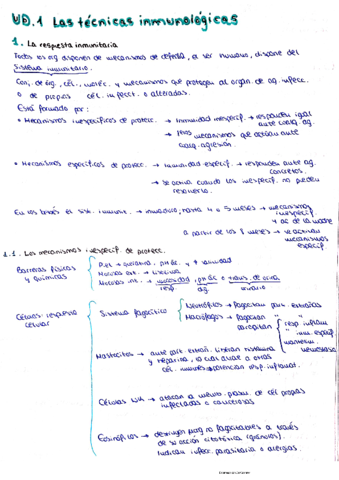 UD.1 Las técnicas inmunológicas
1. La respuesta inmunitaria
Todos los org disponen de mecanismos de defensa, el ser humano, dispone del
Sistema inmunitario.
Conj. de órg, cél, moléc. y mecanismos que protegen al organ. de ag. infecc.
o de propias cél. infect. o alteradas.
Está formado por:
• Mecanismos inespecíficos de protecc. → Inmunidad inespecíf → responden igual
ante cualq. ag.
→ mecanismos que actúan ante
cualq. agresión
• Mecanismos específicos de protecc. → inmunidad específ → responden ante ag.
concretos.
→ se activa cuando los inespecíf. no pueden
resolverlo.
En los bebés el sist. inmune. → inmaduro, hasta 4 o 5 meses → mecanismos
inespecíf
y ac de la madre
a partir de los meses → se activan
mecanismos
específ.
1.1. Los mecanismos inespecíf. de protecc.
Barreras físicas
y químicas
Piel → queratina, pH ác. y sequedad
Mucosa ext. → lisozima
Mucosas int. → mucosidad, pH ác o trans. de orina
resp dig. urinario
Células: respuesta
celular
Sistema fagocítico
Neutrófilos → Fagocitan part. extrañas
Macrófagos → Fagocitan
participan
resp inflam
inm. específ
Mastocitos → ante part. extrañ. liberan histamina
y heparina, la cual atrae a otras
cél. inmunes → potencian resp. inflamat.
Células NK → atacan a membr. plasm. de cél propias
infectadas o cancerosas
Eosinófilos → destruyen pero no fagocitadores a través
de su acción citotóxica (gránulos).
Indican infecc. parasitaria o alergias.